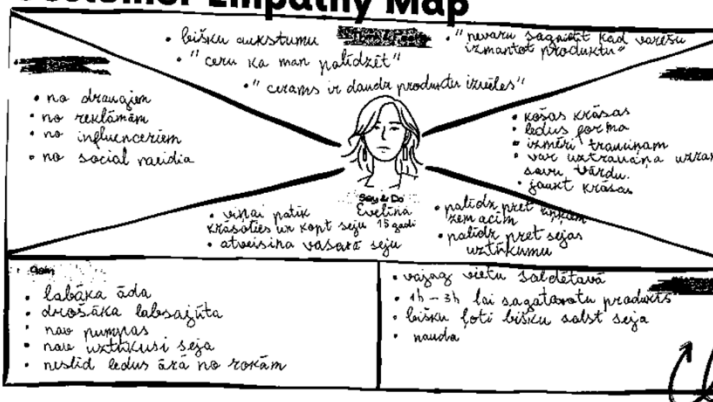 Customer Empathy Map
• bišku aukstumu
• "nevaru sagaidīt kad varēšu
izmantot produktu"
• "ceru ka man palīdzēt"
• "cerams ir daudz produktu izvēles"
• no draugiem
• no reklāmām
• no influenceriem
• no social media
• košas krāsas
• ledus forma
• izmēri trauciņam
• var uz trauciņa uzrak
savu vārdu.
• jaukt krāsas
Say & Do
Evelīna
15 gadi
• viņai patīk
krāsoties un kopt seju
• atvēsina vasarā seju
• palīdz pret
zem acīm
• palīdz pret sejas
uztūkumu
Gain
• labāka āda
• drošāka labsajūta
• nav pumpas
• nav uztūkusi seja
• neslīd ledus ārā no rokām
• vajag vietu saldētavā
• 1h - 3h lai sagatavotu produkts
• bišku ļoti bišku salst seja
• nauda